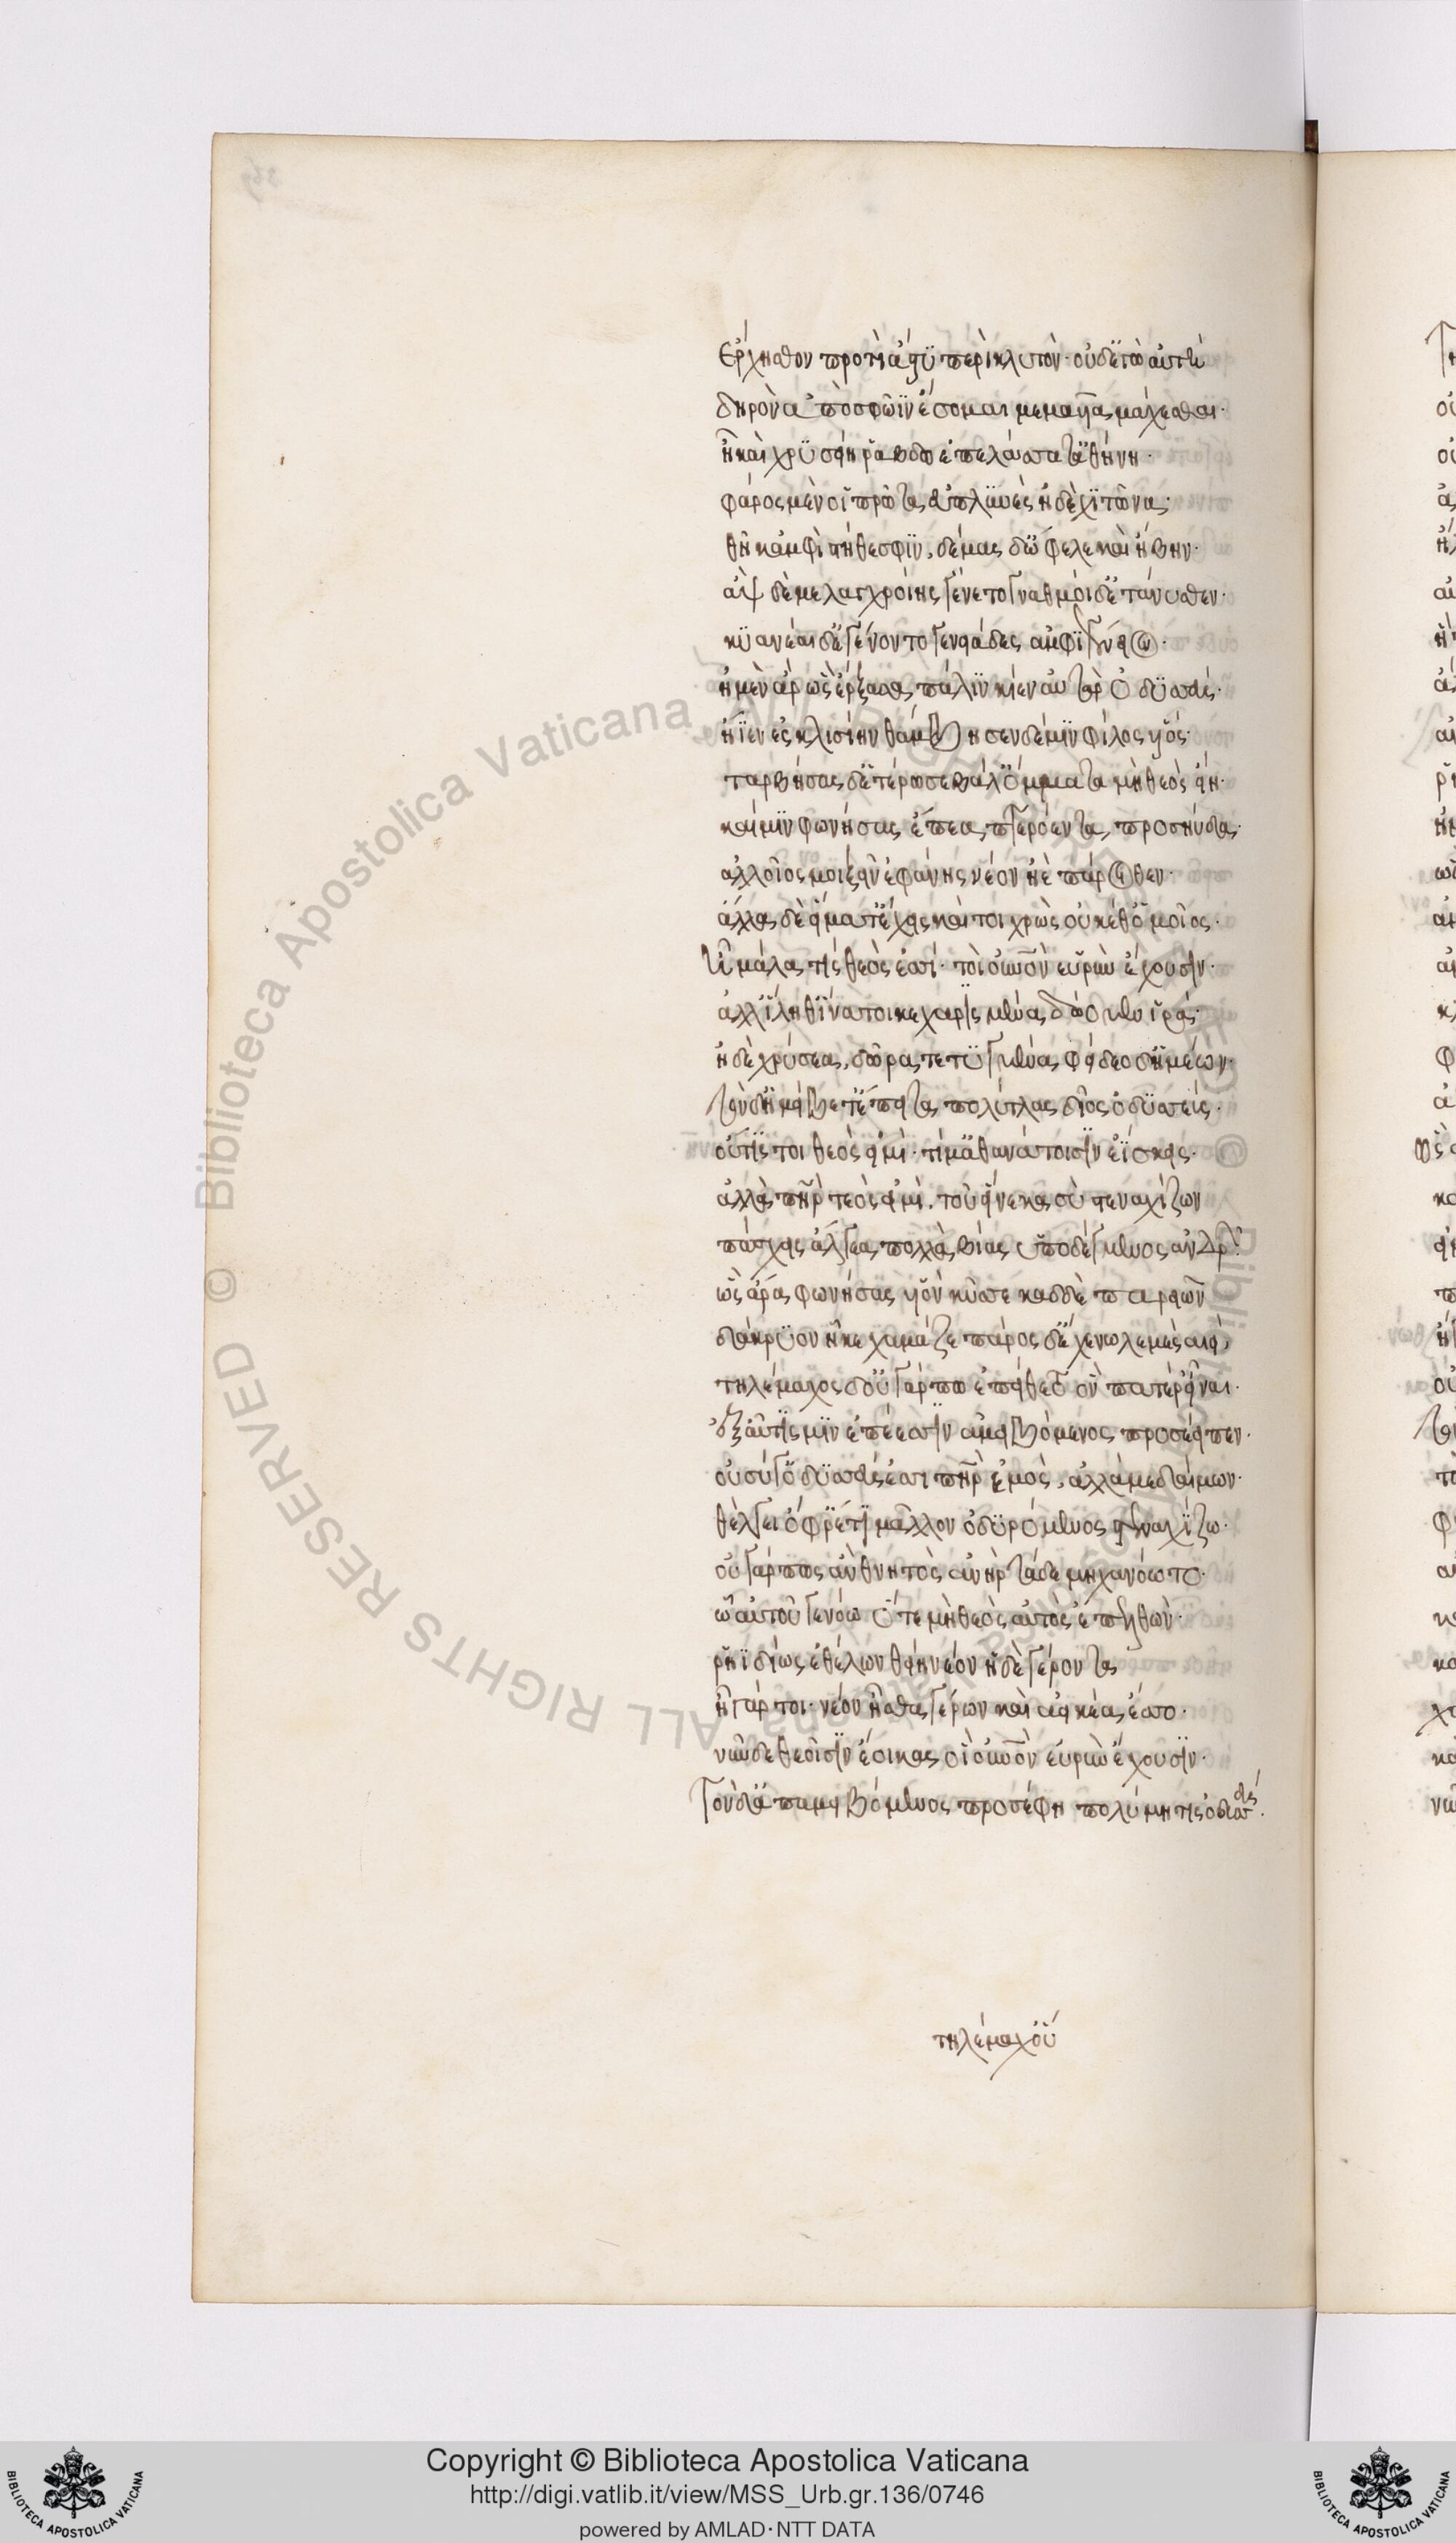 ἔρχησθον προτὶ ἄστυ περικλυτόν· οὐδ' ἐγὼ αὐτὴ
δηρὸν ἀπὸ σφῶϊν ἔσομαι μεμαυῖα μάχεσθαι·
ἦ καὶ χρυσείῃ ῥάβδῳ ἐπεμάσσατ' ἀθήνη·
φᾶρος μέν οἱ πρῶτα ἐϋπλυνὲς ἠδὲ χιτῶνα
θῆκ' ἀμφὶ στήθεσφιν, δέμας δ' ὤφελλε καὶ ἥβην·
ἂψ δὲ μελαγχροιὴς γένετο γναθμοὶ δ' ἐτάνυσθεν·
κυάνεαι δ' ἐγένοντο γενειάδες ἀμφὶ γένειον·
ἡ μὲν ἄρ ὣς ἔρξασα πάλιν κίεν αὐτὰρ ὀδυσσεὺς·
ἤϊεν ἐς κλισίην θάμβησε δέ μιν φίλος υἱὸς·
ταρβήσας δ' ἑτέρωσε βάλ' ὄμματα μὴ θεὸς εἴη·
καί μιν φωνήσας ἔπεα πτερόεντα προσηύδα·
ἀλλοῖός μοι ξεῖν' ἐφάνης νέον ἠὲ πάροιθεν·
ἄλλα δὲ εἵματ' ἔχεις καί τοι χρὼς οὐκέθ' ὁμοῖος·
ἦ μάλα τίς θεὸς ἐσσί· τοὶ οὐνὸν εὐρὺν ἔχουσιν·
ἀλλ' ἵληθ' ἵνα τοι κεχαρισμένα δώομεν ἱρὰ·
ἠδὲ χρύσεα δῶρα τετυγμένα, φείδεο δ' ἡμέων·
τὸν δ' ἠμείβετ' ἔπειτα πολύτλας δῖος ὀδυσσεύς·
οὔτις τοι θεὸς εἰμὶ· τί μ' ἀθανάτοισιν ἐΐσκεις·
ἀλλὰ πηρ τεὸς εἰμὶ. τοῦ εἵνεκα σὺ στεναχίζων
πάσχεις ἄλγεα πολλὰ βίας ὑποδέγμενος ἀνδρῶν·
ὣς ἄρα φωνήσας υἱὸν κύσε καδδὲ παρειῶν
δάκρυον ἧκε χαμᾶζε πάρος δ' ἔχε νωλεμὲς αἰεὶ
τηλέμαχος δ' οὐ γάρ πω ἐπείθετο ὃν πατέρ' εἶναι·
ἐξαῦτίς μιν ἐπέεσσιν ἀμειβόμενος προσέειπεν·
οὐ σύ γ' ὀδυσσεὺς ἐσσι πηρ ἐμὸς, ἀλλά με δαίμων·
θέλγει ὄφρ' ἔτι μᾶλλον ὀδυρόμενος στεναχίζω·
οὐ γάρ πως ἂν θνητὸς ἀνὴρ τάδε μηχανόωτο·
ᾧ αὐτοῦ γε νόω ὅτε μὴ θεὸς αὐτὸς ἐπελθὼν·
ῥηϊδίως ἐθέλων θείη νέον ἠδὲ γέροντα
ἦ γάρ τοι νέον ἦσθα γέρων καὶ ἀεικέα ἕσσο·
νῦν δὲ θεοῖσιν ἔοικας οἳ οὐνὸν εὐρὺν ἔχουσιν·
τὸν δ' ἀπαμειβόμενος προσέφη πολύμητις ὀδυσσεὺς·
τηλέμαχ' οὔ